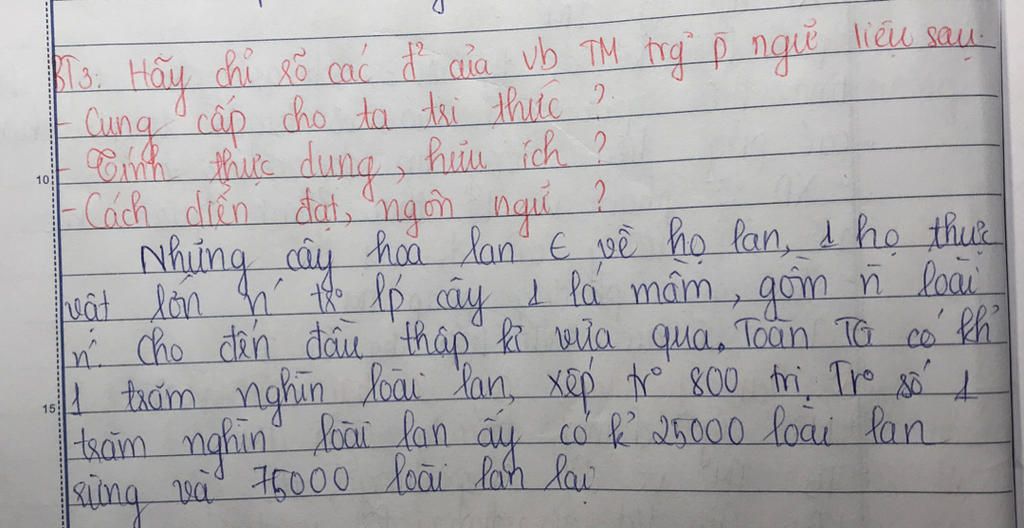 BT3: Hãy chỉ số các đ² của vb TM trg p̄ ngữ liệu sau.
- Cung cấp cho ta tri thức ?
- Tính thực dụng, hữu ích ?
- Cách diễn đạt, ngôn ngữ ?
Những cây hoa lan ∈ về họ lan, 1 họ thực
vật lớn n´ tr° lớp cây 1 lá mầm, gồm n̄ loài
n´. Cho đến đầu thập kỉ vừa qua. Toàn TG có kh²
1 trăm nghìn loài lan, xếp tr° 800 tri. Tr° số 1
trăm nghìn loài lan ấy có k² 25000 loài lan
rừng và 75000 loài lan lai